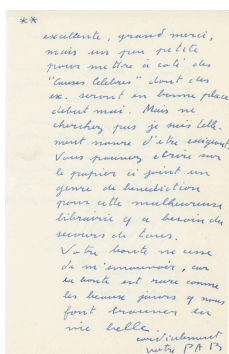 **
excellente, grand merci,
mais un peu petite
pour mettre à coté des
"Causes Célèbres" dont des
ex. seront en bonne place
début mai. Mais ne
cherchez pas je suis telle-
ment navré d'être exigeant.
Vous pouvez écrire sur
le papier ci joint un
genre de benediction
pour cette malheureuse
librairie qui a besoin du
secours de tous.
Votre bonté ne cesse
de m'émouvoir, car
la bonté est rare comme
les beaux jours qui nous
font trouver la
vie belle.
cordialement
votre PAB